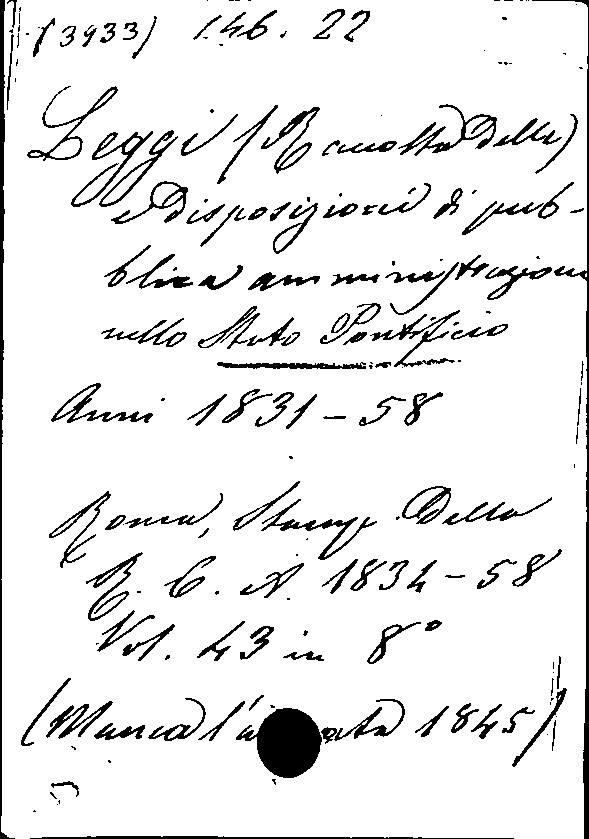 (3933) 146. 22
Leggi (Raccolta delle)
e Disposizioni di pub-
blica amministrazione
nello Stato Pontificio
Anni 1831-58
Roma, Stamp. della
R. C. A. 1834-58
Vol. 43 in 8°
(Manca l'a ata 1845)